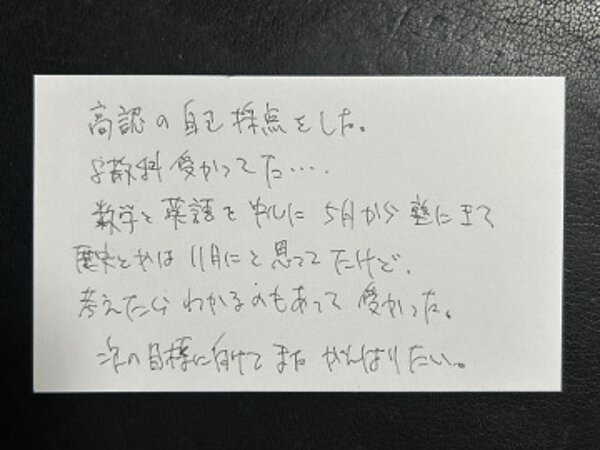 高認の自己採点をした。
8教科受かってた・・・・
数学と英語を中心に5月から塾にきて
歴史とかは11月にと思ってたけど、
考えたらわかるのもあって受かった。
次の目標に向けてまたがんばりたい。